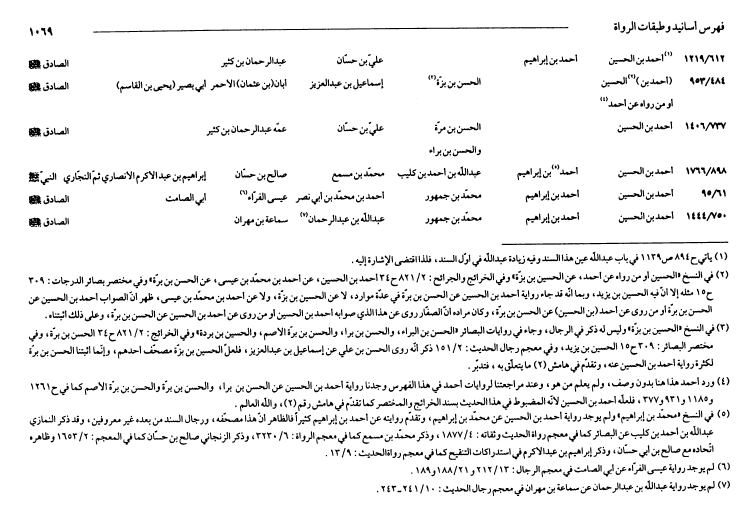 فهرس أسانيد وطبقات الرواة ١٠٦٩
١٢١٩/٦١٢ (١)أحمد بن الحسين أحمد بن إبراهيم عليّ بن حسّان عبدالرحمان بن كثير الصادق ﷺ
٩٥٣/٤٨٤ (أحمد بن)(٢)الحسين الحسن بن برّة(٣) إسماعيل بن عبدالعزيز أبان(بن عثمان) الأحمر أبي بصير (يحيى بن القاسم) الصادق
أو من رواه عن أحمد(٤)
١٤٠٦/٧٣٧ أحمد بن الحسين الحسن بن مرّة عليّ بن حسّان عمّه عبدالرحمان بن كثير الصادق
والحسن بن براء
١٧٦٦/٨٩٨ أحمد بن الحسين أحمد(٥) بن إبراهيم عبدالله بن أحمد بن كليب محمّد بن مسمع صالح بن حسّان إبراهيم بن عبد الأكرم الأنصاري ثمّ النجّاري النبيّ ﷺ
٩٥/٦١ أحمد بن الحسين أحمد بن إبراهيم محمّد بن جمهور أحمد بن محمّد بن أبي نصر عيسى الفرّاء(٦) أبي الصامت الصادق
١٤٤٤/٧٥٠ أحمد بن الحسين أحمد بن إبراهيم محمّد بن جمهور عبدالله بن عبدالرحمان(٧) سماعة بن مهران الصادق
(١) يأتي ح٨٩٤ ص١١٣٩ في باب عبدالله عين هذا السند وفيه زيادة عبدالله في أوّل السند، فلذا اقتضى الإشارة إليه .
(٢) في النسخ «الحسين أو من رواه عن أحمد، عن الحسين بن برّة» وفي الخرائج والجرائح : ٨٢١/٢ ح٣٤ أحمد بن الحسين، عن أحمد بن محمّد بن عيسى، عن الحسن بن برّة» وفي مختصر بصائر الدرجات : ٣٠٩
ح١٥ مثله إلّا أنّ فيه الحسين بن يزيد، وبما أنّه قد جاء رواية أحمد بن الحسين عن الحسن بن برّة في عدّة موارد، لا عن الحسين بن برّة، ولا عن أحمد بن محمد بن عيسى، ظهر أنّ الصواب أحمد بن الحسين عن
الحسن بن برّة أو من روى عن أحمد (بن الحسين) عن الحسن بن برّة، وكان مراده أنّ الصفّار روى عن هذا الذي صوابه أحمد بن الحسين أو من روى عن أحمد بن الحسين عن الحسن بن برّة، وعلى ذلك أثبتناه .
(٣) في النسخ «الحسين بن برّة» وليس له ذكر في الرجال، وجاء في روايات البصائر «الحسن بن البراء، والحسن بن برا، والحسن بن برّة الأصم، والحسين بن بردة» وفي الخرائج : ٨٢١/٢ ح٣٤ الحسن بن برّة، وفي
مختصر البصائر : ٣٠٩ ح١٥ الحسين بن يزيد، وفي معجم رجال الحديث : ١٥١/٢ ذكر أنّه روى الحسن بن علي عن إسماعيل بن عبدالعزيز، فلعلّ الحسين بن برّة مصحّف أحدهم، وإنّما أثبتنا الحسن بن برّة
لكثرة رواية أحمد بن الحسين عنه، وتقدّم في هامش (٢) ما يتعلّق به ، فتدبّر .
(٤) ورد أحمد هذا هنا بدون وصف، ولم يعلم من هو، وعند مراجعتنا لروايات أحمد في هذا الفهرس وجدنا رواية أحمد بن الحسين عن الحسن بن برا، والحسن بن برّة والحسن بن برّة الأصم كما في ح١٢٦١
و١١٨٥ و٩٣١ و٣٧٧، فلعلّه أحمد بن الحسين لأنّه المضبوط في هذا الحديث بسند الخرائج والمختصر كما تقدّم في هامش رقم (٢)، والله العالم .
(٥) في النسخ «محمّد بن إبراهيم» ولم يوجد رواية أحمد بن الحسين عن محمّد بن إبراهيم، وتقدّم روايته عن أحمد بن إبراهيم كثيراً فالظاهر أنّ هذا مصحّفه، ورجال السند من بعده غير معروفين، وقد ذكر النمازي
عبدالله بن أحمد بن كليب عن البصائر كما في معجم رواة الحديث وثقاته : ١٨٧٧/٤، وذكر محمّد بن مسمع كما في معجم الرواة : ٣٢٣٠/٦، وذكر الزنجاني صالح بن حسّان كما في المعجم : ١٦٥٣/٢ وظاهره
اتّحاده مع صالح بن أبي حسّان، وذكر إبراهيم بن عبدالأكرم في استدراكات التنقيح كما في معجم رواة الحديث : ١٣/٩ .
(٦) لم يوجد رواية عيسى الفرّاء عن أبي الصامت في معجم الرجال : ٢١٢/١٣ و١٨٨/٢١ و١٨٩ .
(٧) لم يوجد رواية عبدالله بن عبدالرحمان عن سماعة بن مهران في معجم رجال الحديث : ٢٤١/١٠ـ٢٤٣ .